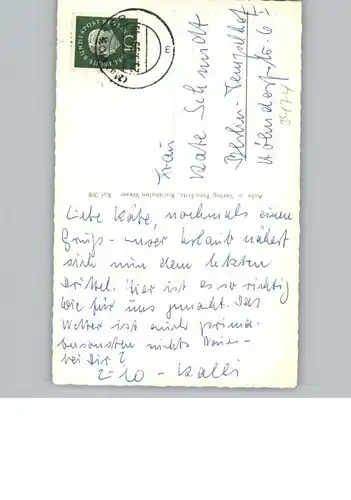 Frau
Käte Schmidt
Berlin-Tempelhof
Höhndorfstr. 6 I
Aufn. u. Verlag Foto-Fritz, Karlshafen Weser Ruf 268
Liebe Käte, nochmals einen
Gruß - unser Urlaub nähert
sich nun dem letzten
Drittel. Hier ist es so richtig
wie für uns gemacht. Das
Wetter ist auch prima.
Ansonsten nichts Neues -
bei Dir?
Kalli
DEUTSCHE BUNDESPOST
10